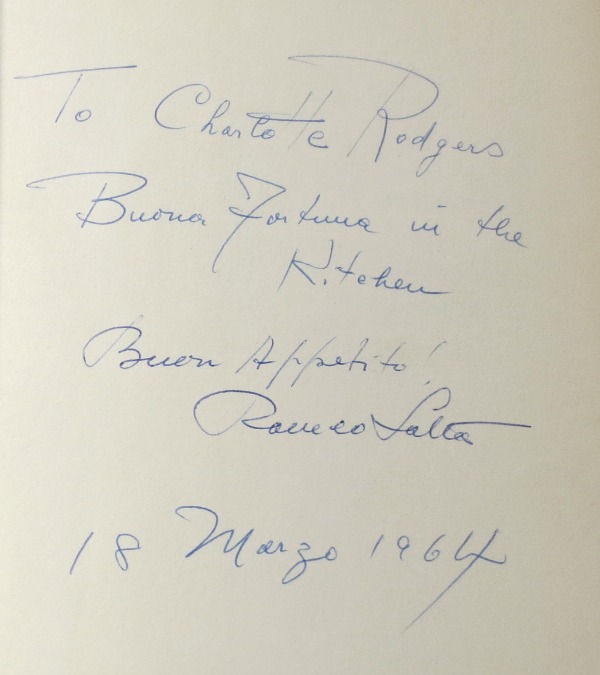 To Charlotte Rodgers
Buona Fortuna in the
Kitchen
Buon Appetito!
Romeo Salta
18 Marzo 1964